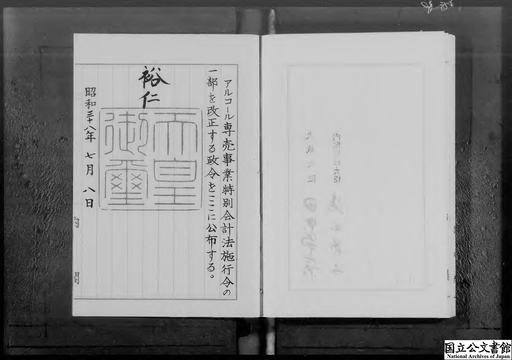 アルコール専売事業特別会計法施行令の
一部を改正する政令をここに公布する。
裕仁
天皇
御璽
昭和三十八年七月八日
内閣
国立公文書館
National Archives of Japan